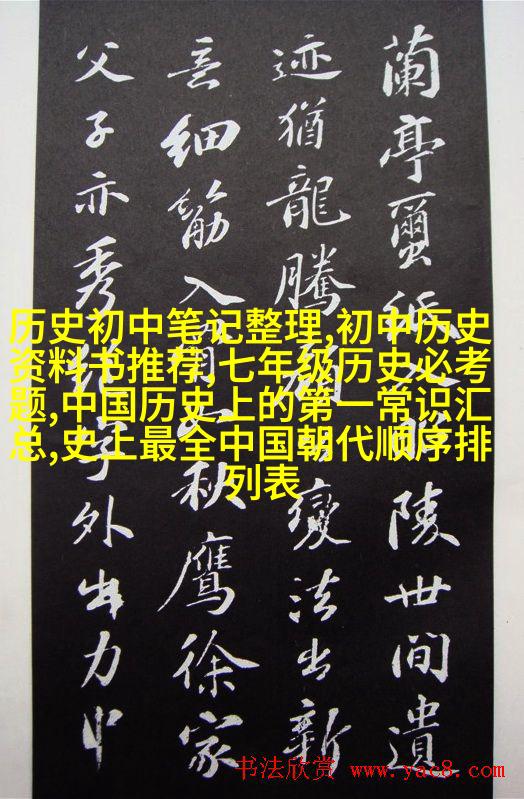 蘭亭繭紙陵世間遺
迹猶龍騰變法出新
意細筋入秋鷹徐家
父子亦秀字外出力中
历史初中笔记整理,初中历史
资料书推荐,七年级历史必考
题,中国历史上的第一常识汇
总,史上最全中国朝代顺序排
列表
书法欣赏 www.yac8.com